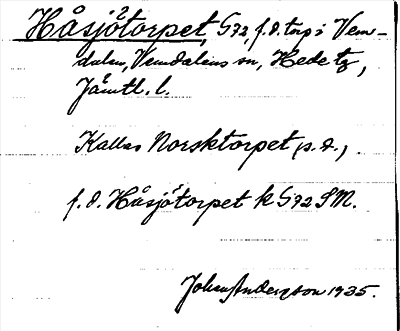 Håsjötorpet, G72, f.d. torp i Vem-
dalen, Vemdalens sn, Hede tg,
Jämtl. l.
Kallas Norsktorpet, s.d.,
f.d. Håsjötorpet k G72 SM.
John Andersson 1935.